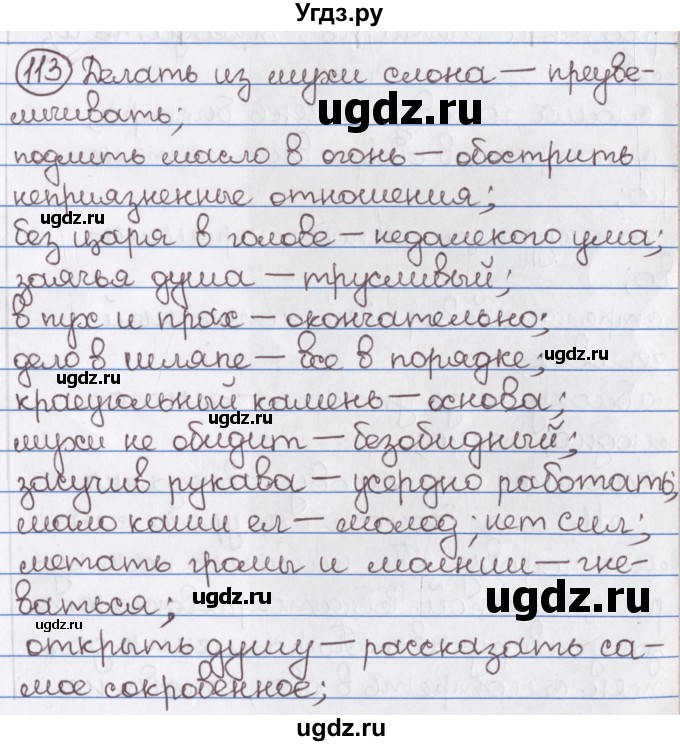 Угдз.ру
113 Делать из мухи слона — преуве-
личивать;
подлить масло в огонь — обострить
неприязненные отношения;
без царя в голове — недалекого ума;
заячья душа — трусливый;
в пух и прах — окончательно;
дело в шляпе — все в порядке;
краеугольный камень — основа;
мухи не обидит — безобидный;
засучив рукава — усердно работать;
мало каши ел — молод; нет сил;
метать громы и молнии — гне-
ваться;
открыть душу — рассказать са-
мое сокровенное;
ugdz.ru
ugdz.ru
ugdz.ru
ugdz.ru
ugdz.ru
ugdz.ru
ugdz.ru
ugdz.ru
ugdz.ru
ugdz.ru